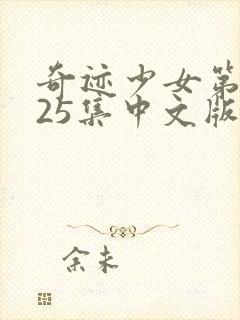 奇迹少女第
25集中文版
余未